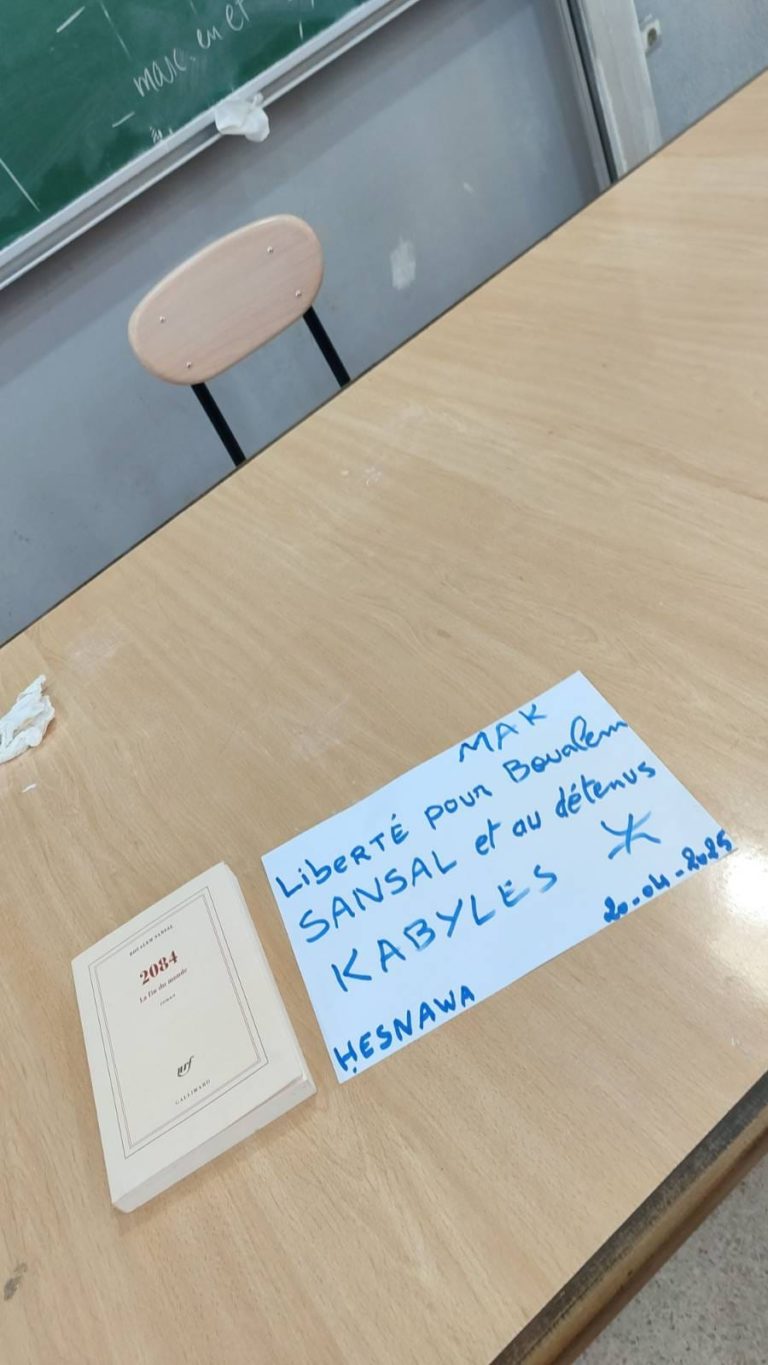 marc, en et
MAK
LIBERTÉ pour Boualem
SANSAL et au détenus
KABYLES ⵣ
20-04-2025
HESNAWA
BOUALEM SANSAL
2084
La fin du monde
roman
nrf
GALLIMARD